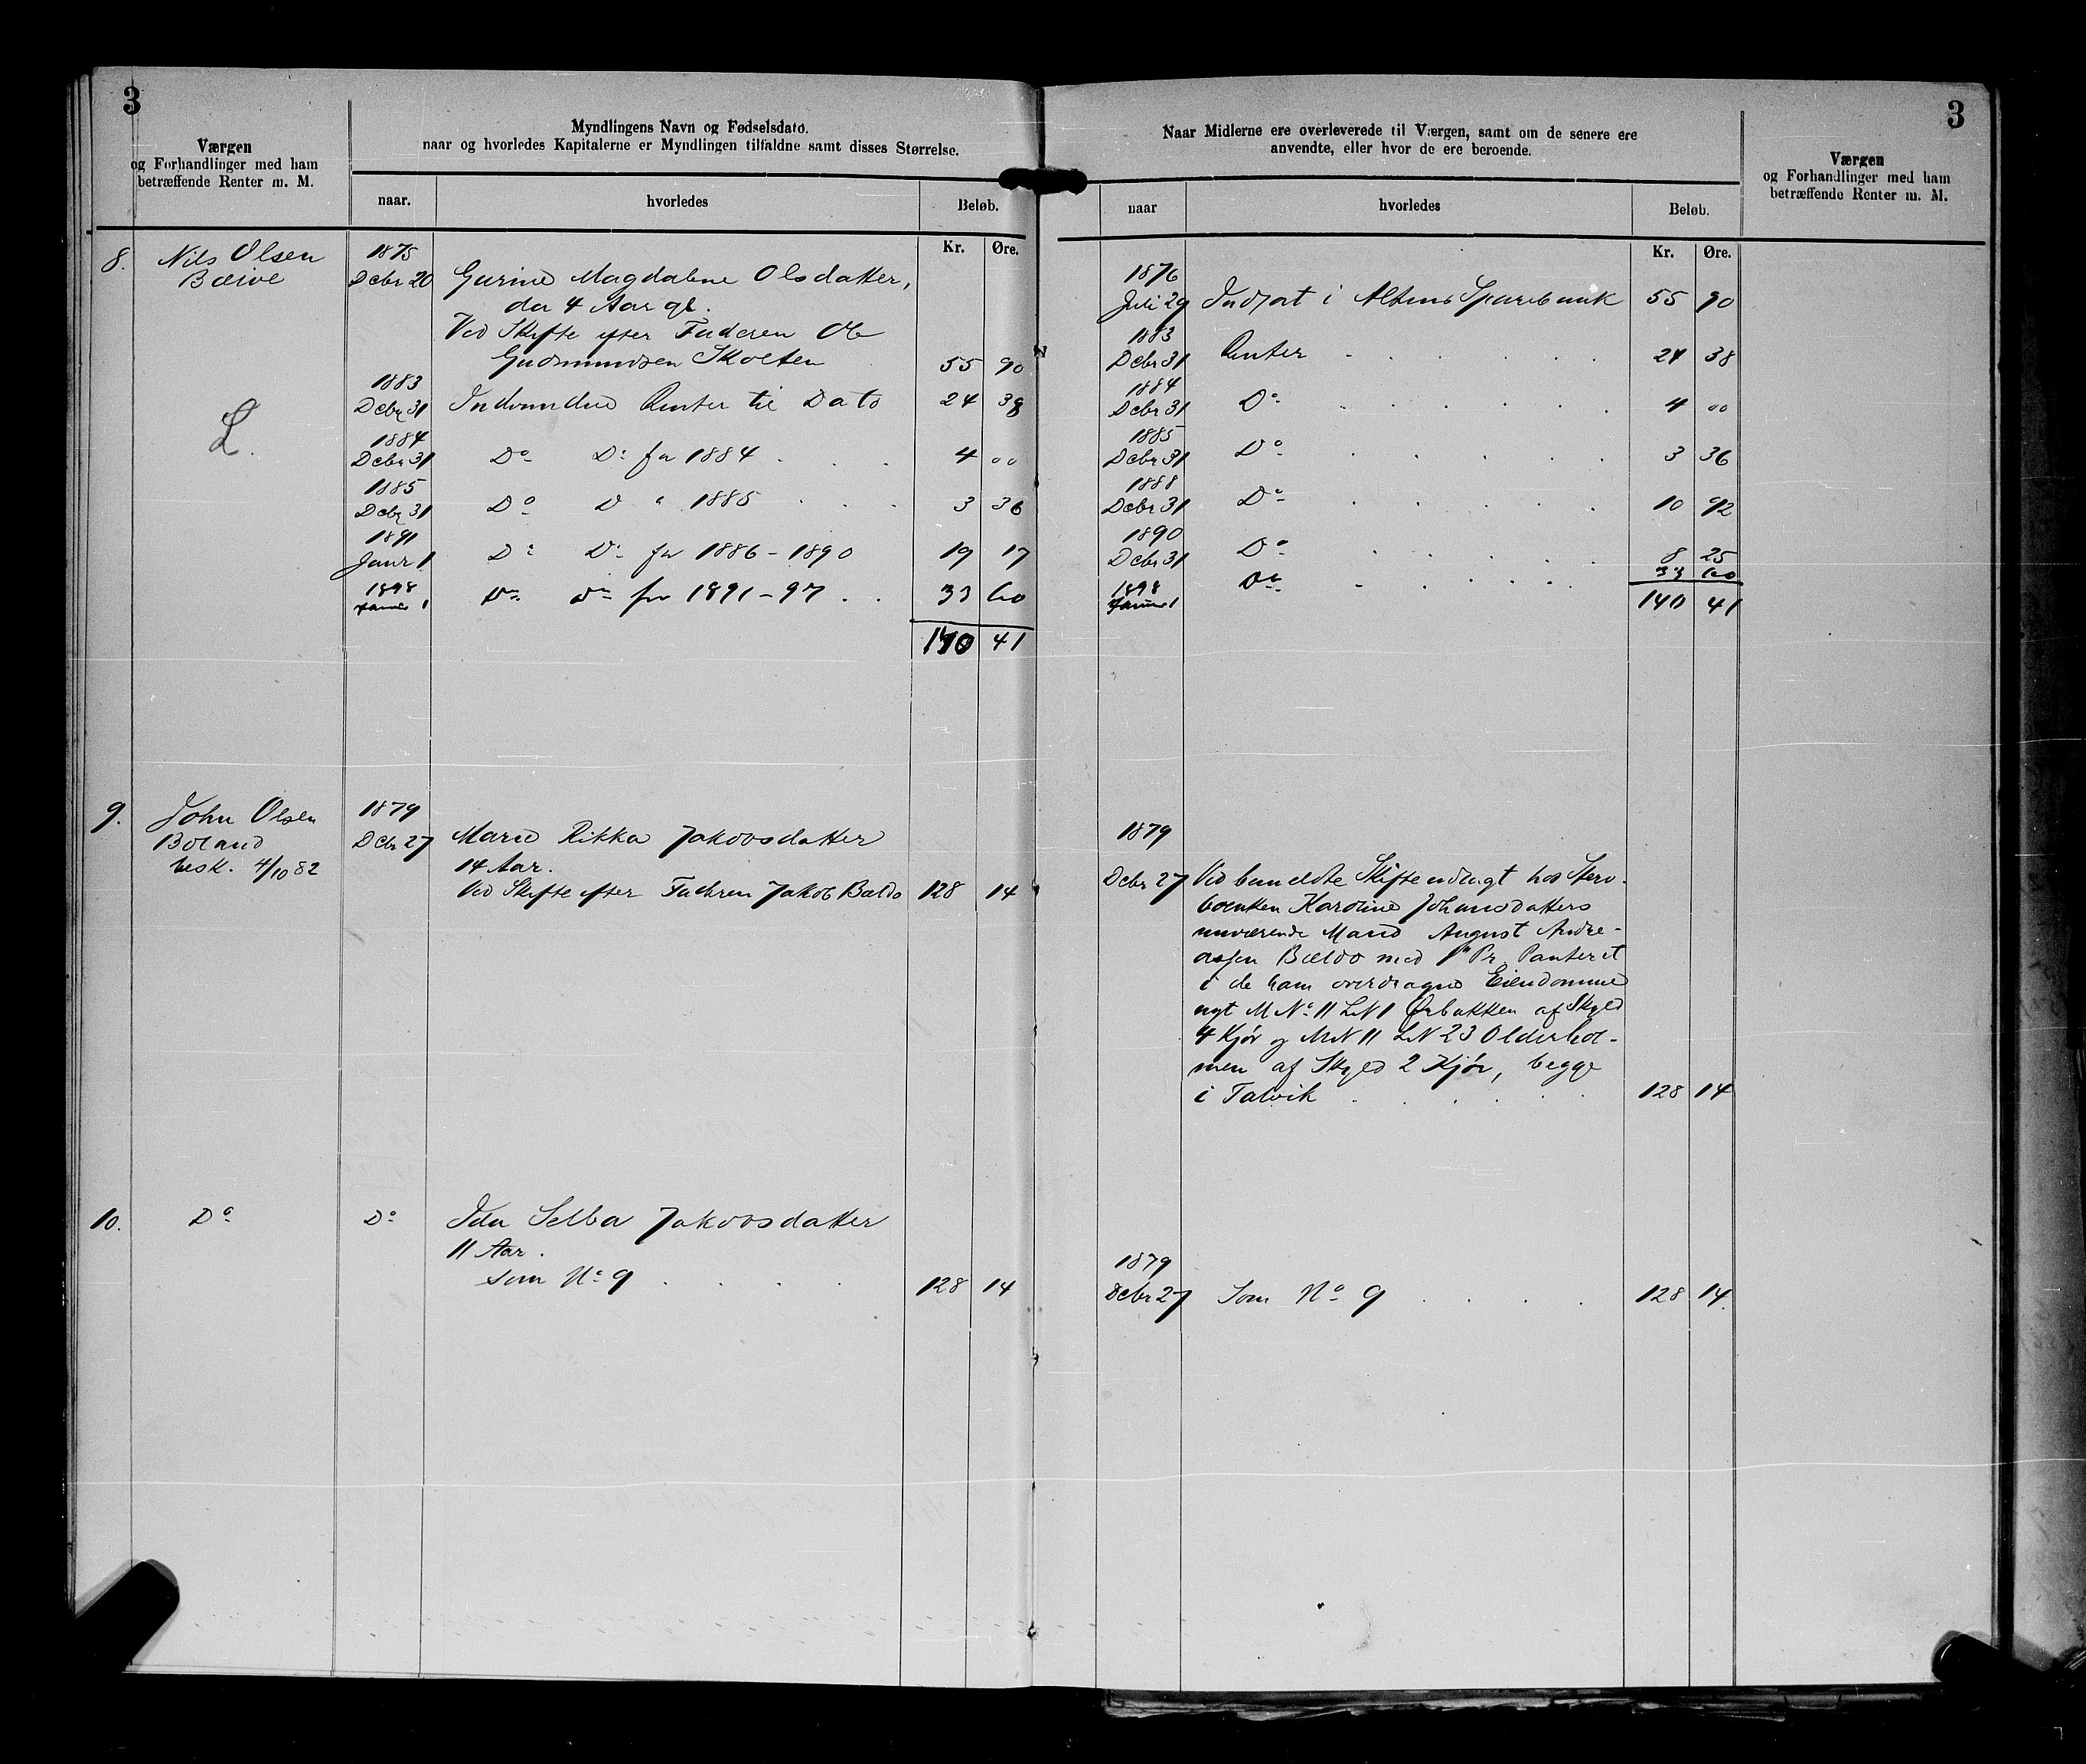 3
Værgen
og Forhandlinger med ham
betræffende Renter m. M.
Myndlingens Navn og Fødselsdato.
naar og hvorledes Kapitalerne er Myndlingen tilfaldne samt disses Størrelse.
naar.
hvorledes
Beløb.
Kr. Øre.
8. Nils Olsen
1875
Dcbr 20 Gurine Magdalene Olsdatter,
da 4 Aar gl.
Ved Skifte efter Faderen Ole
Gudmundsen Skolten 55 90
1883
Dcbr 31 Indvundne Renter til Dato 24 38
L.
1884
Dcbr 31 Do Do for 1884 . . . 4 00
1885
Dcbr 31 Do D " 1885 . . . 3 36
1891
Janr 1 Do Do for 1886-1890 19 17
1898
Januar 1 Do Do for 1891-97 . . 33 60
140 41
9. John Olsen
besk. 4/10 82
1879
Dcbr 27 Marie Rikka Jakobsdatter
14 Aar.
Ved Skifte efter Faderen Jakob Bældo 128 14
10. Do Do Ida Selba Jakobsdatter
11 Aar.
som No 9 . . . . 128 14
3
Naar Midlerne ere overleverede til Værgen, samt om de senere ere
anvendte, eller hvor de ere beroende.
Værgen
og Forhandlinger med ham
betræffende Renter m. M.
naar
hvorledes
Beløb.
Kr. Øre.
1876
Juli 29 Indsat i Altens Sparebank 55 90
1883
Dcbr 31 Renter . . . . . 24 38
1884
Dcbr 31 Do . . . . . 4 00
1885
Dcbr 31 Do . . . . . 3 36
1888
Dcbr 31 Do . . . . . 10 92
1890
Dcbr 31 Do . . . . . 8 25
1898
Januar 1 Do . . . . . 33 60
140 41
1879
Dcbr 27 Skifteudlagt hos Sterv-
boenken Karoline Johansdatters
nuværende Mand August Andre-
assen Bældo med 1ste Pr. Panteret
i de ham overdragne Eiendomme
nyt M No 11 L N 1 Ørbakken af Skyld
4 Kjør og M N 11 L N 23 Olderhol-
men af Skyld 2 Kjør, begge
i Talvik . . . . . 128 14
1879
Dcbr 27 Som No 9 . . . . 128 14.